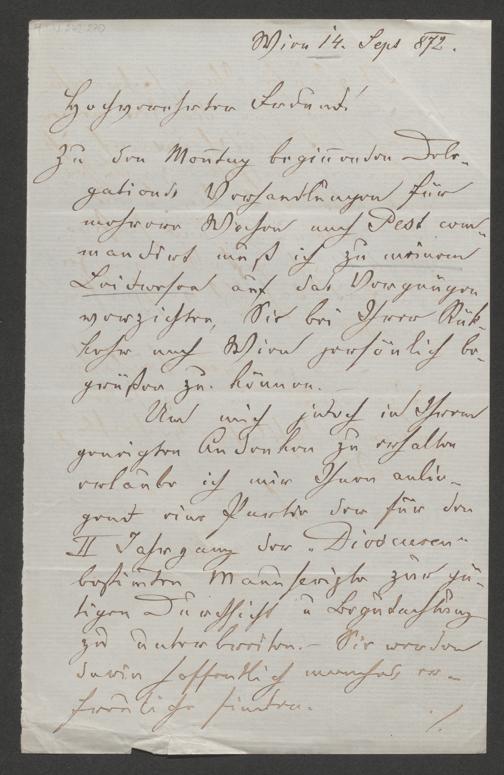 Wien 14. Sept 872.
Hochverehrter Freund!
Zu den Montag beginnenden Dele-
gations Verhandlungen für
mehrere Wochen nach Pest com-
mandirt muß ich zu meinem
Leidwesen auf das Vergnügen
verzichten, Sie bei Ihrer Rük-
kehr nach Wien persönlich be-
grüßen zu können. –
Um mich jedoch in Ihrem
geneigten Andenken zu erhalten
erlaube ich mir Ihnen anlie-
gend eine Partie der für den
II Jahrgang der „Dioscuren"
bestimten Manuscripte zur gü-
tigen Durchsicht u Begutachtung
zu unterbreiten. – Sie werden
darin hoffentlich manches er-
freuliche finden.
./.